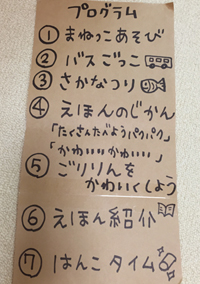 プログラム
① まねっこあそび
② バスごっこ
③ さかなつり
④ えほんのじかん
「たくさんたべようパクパク」
「かわいいかわいい」
⑤ ごりりんを
かわいくしよう
⑥ えほん紹介
⑦ はんこタイム